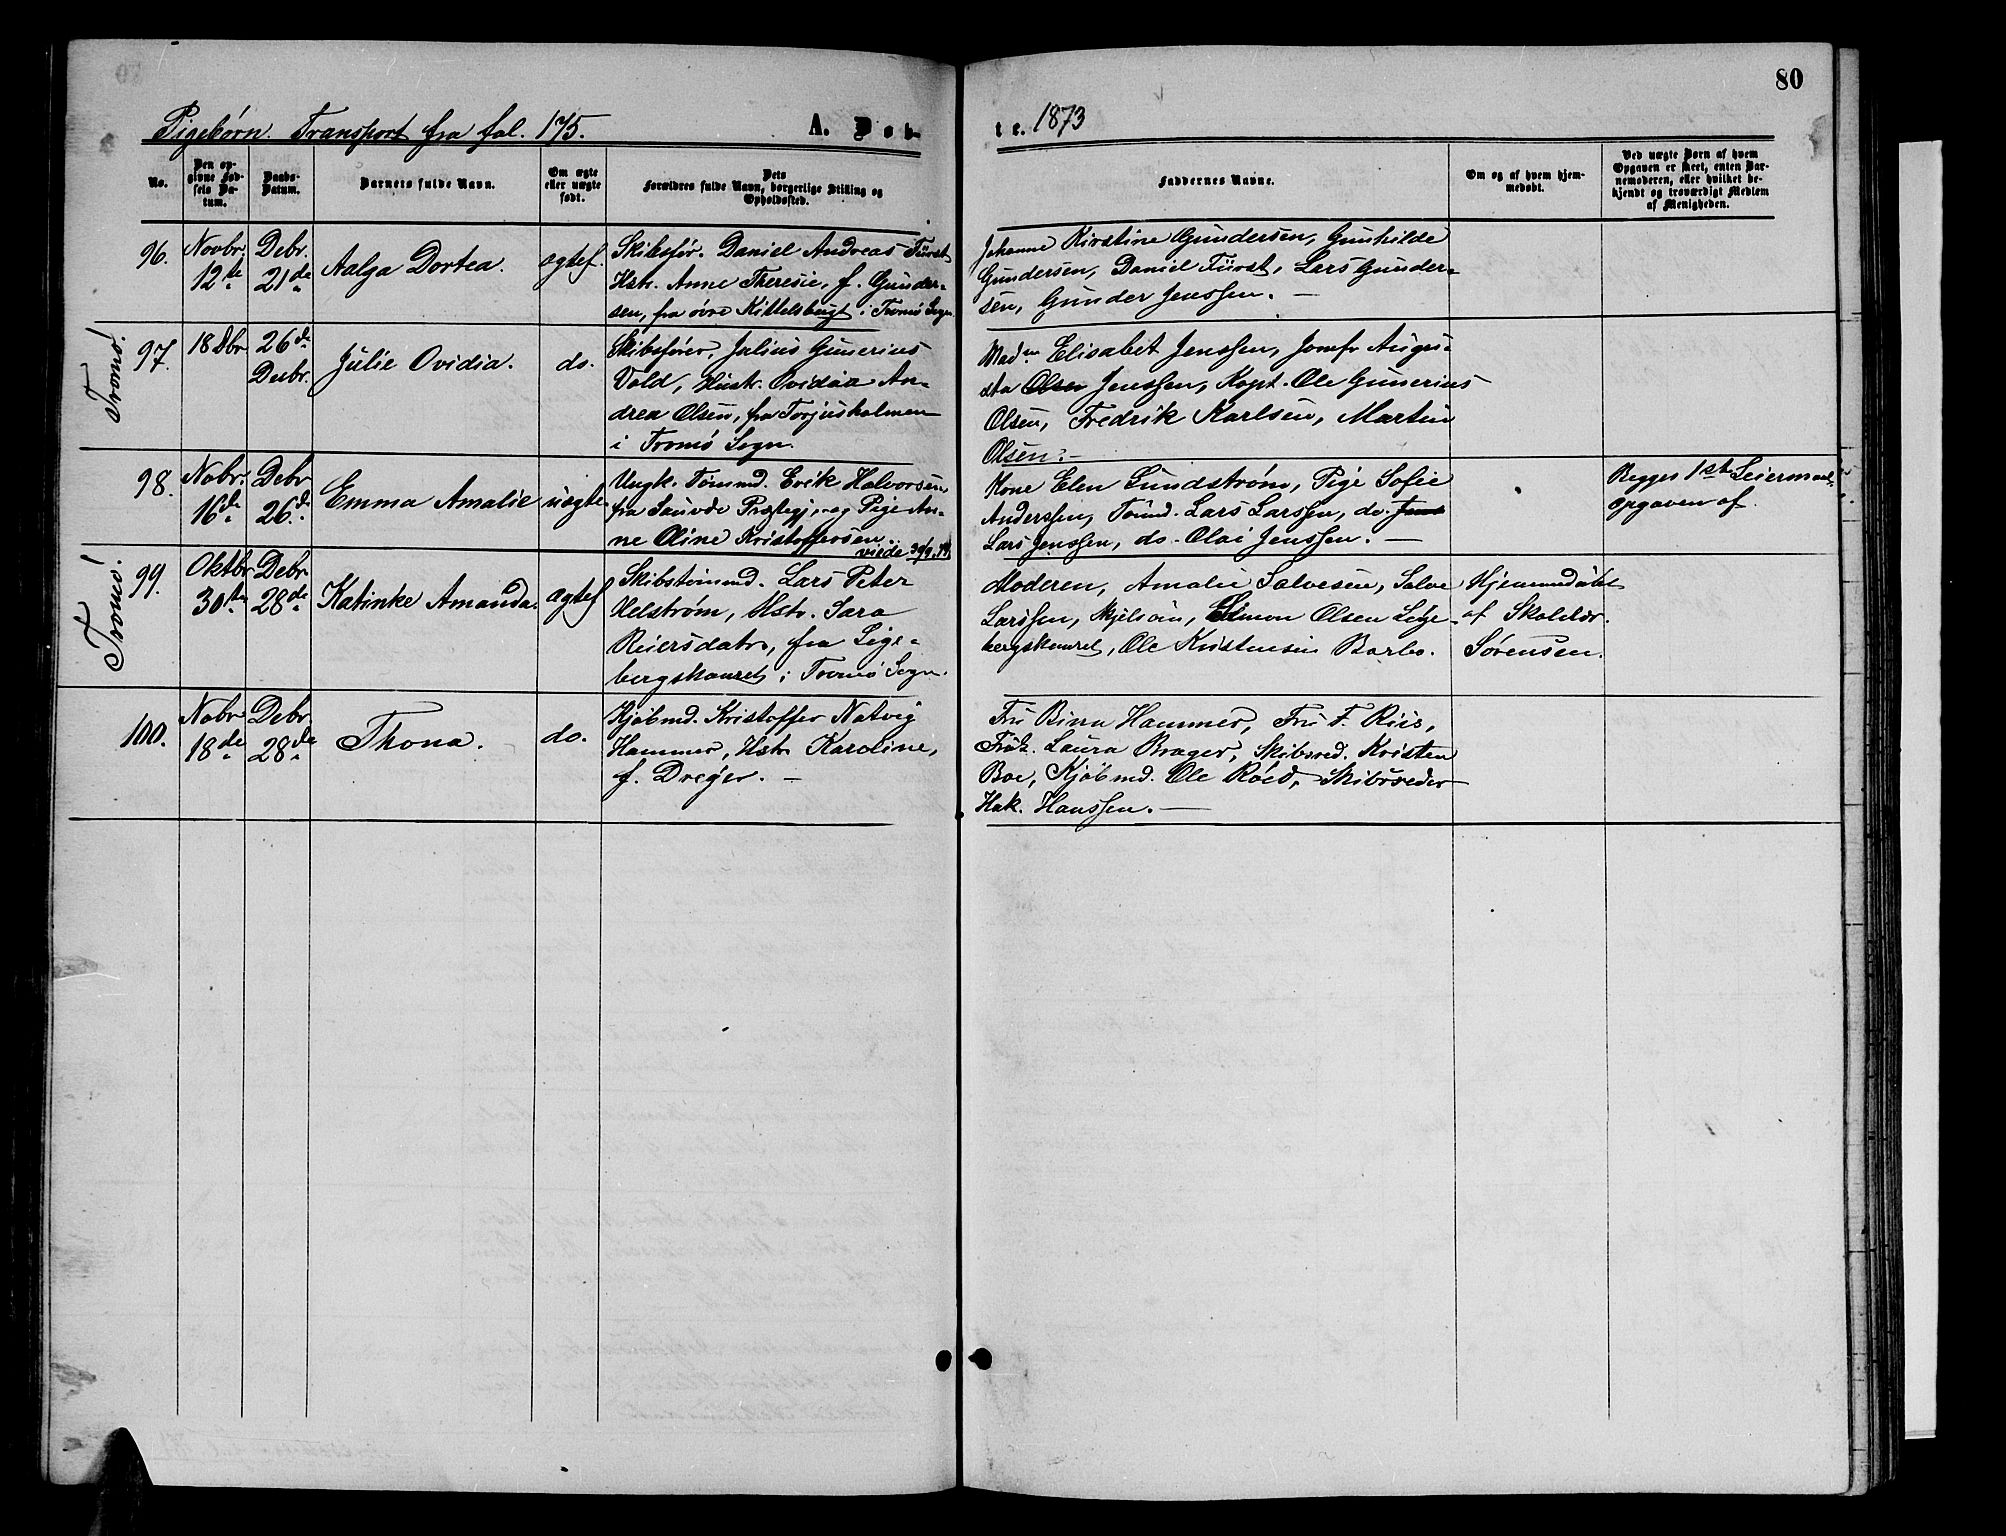 80
Pigebørn. Transport fra fol. 175. A. Døb-
te. 1873
No.
Den op-
givne Fød-
sels Da-
tum.
Daabs-
Datum.
Barnets fulde Navn.
Om ægte
eller uægte
født.
Dets
Forældres fulde Navn, borgerlige Stilling og
Opholdssted.
Faddernes Navne.
Om og af hvem hjem-
medøbt.
Ved uægte Børn af hvem
Opgaven er skeet, enten Bar-
nemoderen, eller hvilket be-
kjendt og troværdigt Medlem
af Menigheden.
96. Novbr. 12te
Debr. 21de
Aalga Dortea.
ægtef.
Skibsfør. Daniel Andreas Fürst
Hstr. Anne Theresie, f. Gunder-
sen, fra øvre Kittelsbugt i Tromø Sogn.
Johanne Kirstine Gundersen, Gunhilde
Gundersen, Daniel Fürst, Lars Gunder-
sen, Gunder Jenssen. —
Tromø!
97. 18 Dbr
26de Desbr.
Julie Ovidia.
do.
Skibsfører, Julius Gunerius
Vold, Hustr. Ovidia An-
drea Olsen, fra Torjusholmen
i Tromø Sogn.
Madm Elisabet Jenssen, Jomfr Augu-
sta Olsen Jenssen, Kapt. Ole Gunerius
Olsen, Fredrik Karlsen, Martin
Olsen. —
98. Nobr. 16de
Debr 26de
Emma Amalie
uægte
Ungk. Tømmd. Erik Halvorsen
fra Sauvde Præstegj, og Pige An-
ne Oline Kristoffersen.
viede 30/9.74.
Kone Elen Lundstrøm, Pige Sofie
Anderssen, Tømd. Lars Larssen, do.
Lars Jenssen, do. Olai Jenssen. —
Begges 1ste Leiermaal.
Opgaven af
Tromø!
99. Oktbr. 30te
Debr 28de
Katinke Amanda.
ægtef
Skibstømmd. Lars Peter
Velstrøm, Hstr. Sara
Reiersdatr, fra Lige-
bergskauret i Tromø Sogn.
Moderen, Amalie Salvesen, Salve
Larssen, Mjelvin, Simon Olsen Lege-
bergskauret, Ole Kristensen Barbo.
Hjemmedøbt
af Skolelær.
Sørensen.
100. Nobr 18de
Debr 28de
Thona.
do.
Kjøbmd. Kristoffer Natvig
Hammer, Hstr. Karoline,
f. Dreyer. —
Fru Birra Hammer, Fru F. Riis,
Frøk. Laura Brager, Skibsred. Kristen
Boe, Kjøbmd. Ole Röed, Skibsreder
Hak. Hanssen. —